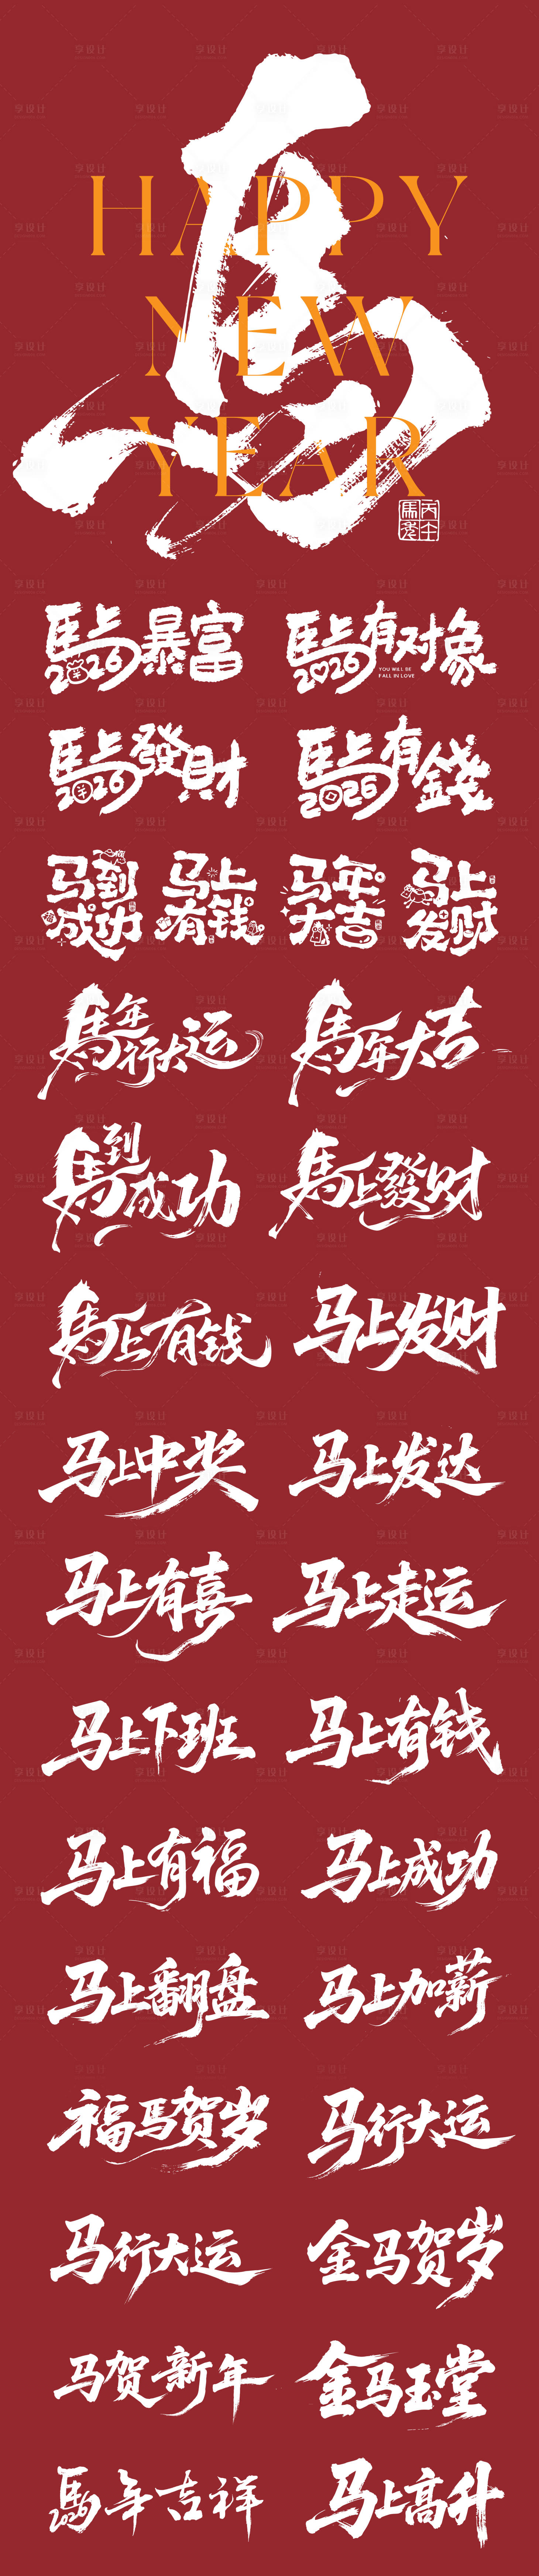 馬
HAPPY
NEW
YEAR
馬上暴富
2026
馬上有对象
2026
YOU WILL BE
FALL IN LOVE
馬上發財
2026
馬上有錢
2026
马到
成功
马上
有钱
马年
大吉
马上
发财
馬年
行大运
馬年大吉
馬到
成功
馬上發财
馬上有钱
马上发财
马上中奖
马上发达
马上有喜
马上走运
马上下班
马上有钱
马上有福
马上成功
马上翻盘
马上加薪
福马贺岁
马行大运
马行大运
金马贺岁
马贺新年
金马玉堂
馬年吉祥
2026
马上高升
享设计